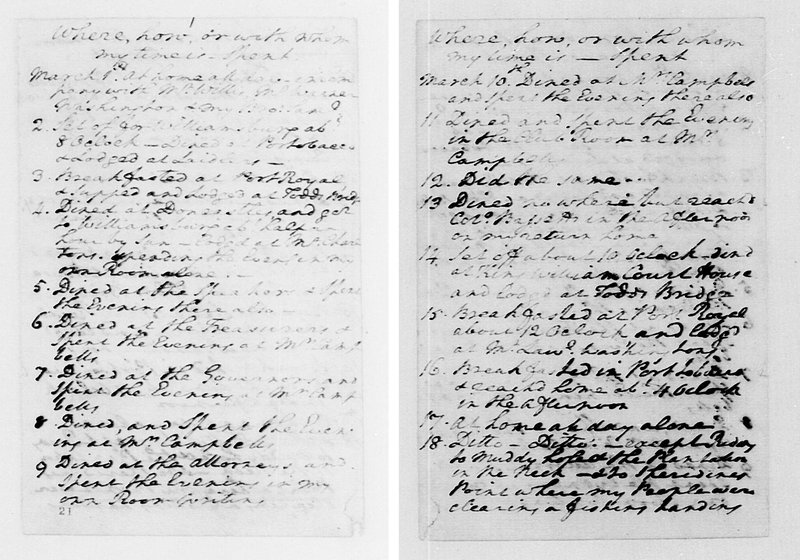 Where, how, or with whom
my time is — Spent
March 1st. At home all day — in Com
pany with Mr. Willis, Mr. Warner
Washington & my Brothers
2. Set of for Williamsburg abt.
8 Oclock — Dined at Portobacco
& Lodged at
3. Breakfasted at Port Royal
& Supped and Lodged at Todds Bridge
4. Dined at and got
to Williamsburg half an
hour by Sun — Lodged at Mrs
tons. Spending the evening in my
own Room alone —
5. Dined at the Speakers & Spent
the Evening there also —
6. Dined at the Treasurers &
Spent the Evening at Mrs. Camp
bells
7. Dined at the Governors and
Spent the Evening at Mrs. Camp
bells
8 Dined, and Spent the Even
ing at Mrs. Campbells
9 Dined at the Attorneys and
Spent the Evening in my
own Room writing
21
Where, how, or with whom
my time is — Spent
March 10th. Dined at Mrs. Campbells
and Spent the Evening there also
11. Dined and Spent the Evening
in the Club Room at Mrs.
Campbells
12. Did the same —
13 Dined no where but reachd
Colo. Bassetts in the afternoon
on my return home
14. Set of about 10 Oclock — dind
at King William Court House
and lodgd at Todds Bridge
15. Breakfasted at Port Royal
about 12 Oclock and lodgd
at Mr. Lawe. Washingtons
16. Breakfasted in Port tobacco
& reachd home abt. 4 Oclock
in the afternoon
17. At home all day alone
18. Ditto — Ditto. — except Riding
to Muddy hole & the Plantation
in the Neck — & to Sheridines
Point where my People were
clearing a fishing landing